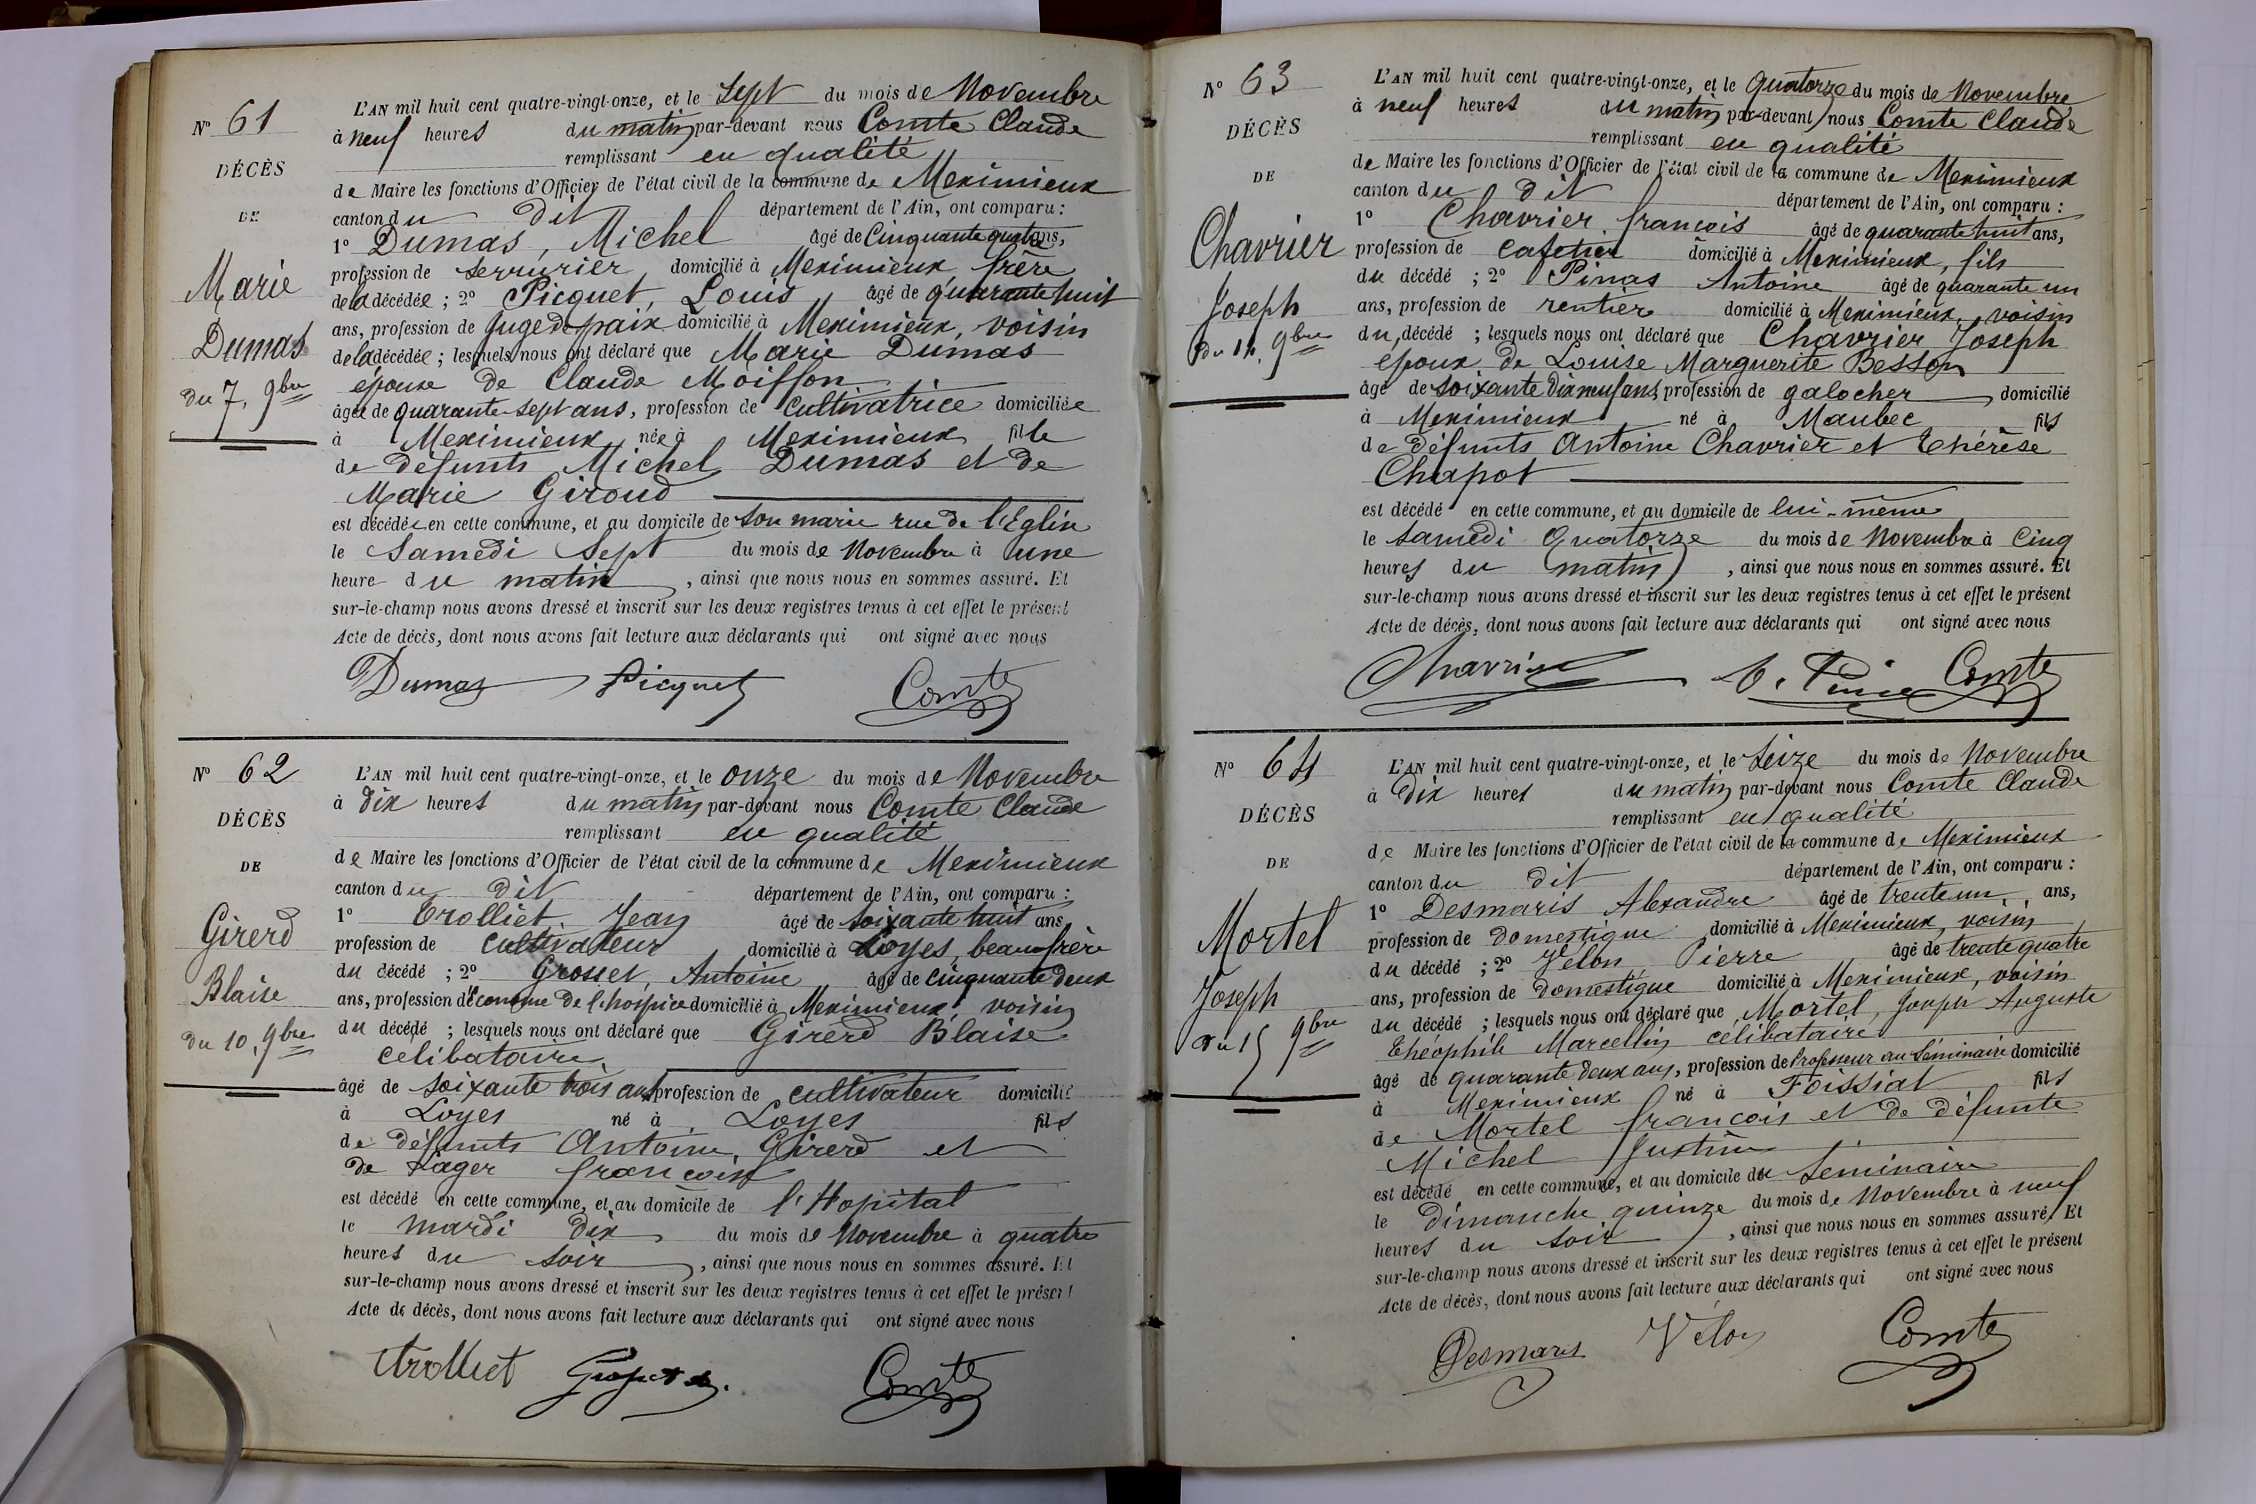 N° 61
DÉCÈS
DE
Marie
Dumas
du 7, 9bre
L'AN mil huit cent quatre-vingt-onze, et le Sept du mois de Novembre
à neuf heures du matin par-devant nous Comte Claude
remplissant en qualité
de Maire les fonctions d'Officier de l'état civil de la commune de Meximieux
canton du dit département de l'Ain, ont comparu :
1° Dumas, Michel âgé de Cinquante quatre ans,
profession de serrurier domicilié à Meximieux, frère
de la décédée ; 2° Picquet, Louis âgé de quarante huit
ans, profession de Juge de paix domicilié à Meximieux, voisin
de la décédée ; lesquels nous ont déclaré que Marie Dumas
épouse de Claude Moiffon
âgée de quarante sept ans, profession de cultivatrice domiciliée
à Meximieux née à Meximieux fille
de défunts Michel Dumas et de
Marie Giroud
est décédée en cette commune, et au domicile de son marie rue de l'Eglise
le Samedi Sept du mois de Novembre à une
heure du matin, ainsi que nous nous en sommes assuré. Et
sur-le-champ nous avons dressé et inscrit sur les deux registres tenus à cet effet le présent
Acte de décès, dont nous avons fait lecture aux déclarants qui ont signé avec nous
Dumas Picquet Comte
N° 62
DÉCÈS
DE
Girerd
Blaise
du 10, 9bre
L'AN mil huit cent quatre-vingt-onze, et le onze du mois de Novembre
à dix heures du matin par-devant nous Comte Claude
remplissant en qualité
de Maire les fonctions d'Officier de l'état civil de la commune de Meximieux
canton du dit département de l'Ain, ont comparu :
1° Trolliet Jean âgé de soixante huit ans
profession de cultivateur domicilié à Loyes, beau frère
du décédé ; 2° Grosset, Antoine âgé de cinquante deux
ans, profession d'économe de l'hospice domicilié à Meximieux, voisin
du décédé ; lesquels nous ont déclaré que Girerd Blaise
célibataire
âgé de soixante trois ans profession de cultivateur domicilié
à Loyes né à Loyes fils
de défunts Antoine Girerd et
de françoise
est décédé en cette commune, et au domicile de l'Hopital
le mardi dix du mois de Novembre à quatre
heures du soir, ainsi que nous nous en sommes assuré. Et
sur-le-champ nous avons dressé et inscrit sur les deux registres tenus à cet effet le présent
Acte de décès, dont nous avons fait lecture aux déclarants qui ont signé avec nous
Trolliet Comte
N° 63
DÉCÈS
DE
Chavrier
Joseph
du 14, 9bre
L'AN mil huit cent quatre-vingt-onze, et le Quatorze du mois de Novembre
à neuf heures du matin par-devant nous Comte Claude
remplissant en qualité
de Maire les fonctions d'Officier de l'état civil de la commune de Meximieux
canton du dit département de l'Ain, ont comparu :
1° Chavrier, françois âgé de quarante huit ans,
profession de cafetier domicilié à Meximieux, fils
du décédé ; 2° Pinas Antoine âgé de quarante un
ans, profession de rentier domicilié à Meximieux, voisin
du décédé ; lesquels nous ont déclaré que Chavrier Joseph
époux de Louise Marguerite Besson
âgé de soixante dix neuf ans, profession de galocher domicilié
à Meximieux né à Maubec fils
de défunts Antoine Chavrier et Thérèse
Chapot
est décédé en cette commune, et au domicile de lui-même
le samedi Quatorze du mois de Novembre à Cinq
heures du matin, ainsi que nous nous en sommes assuré. Et
sur-le-champ nous avons dressé et inscrit sur les deux registres tenus à cet effet le présent
Acte de décès, dont nous avons fait lecture aux déclarants qui ont signé avec nous
Chavrier Comte
N° 64
DÉCÈS
DE
Mortel
Joseph
du 15 9bre
L'AN mil huit cent quatre-vingt-onze, et le Seize du mois de Novembre
à Dix heures du matin par-devant nous Comte Claude
remplissant en qualité
de Maire les fonctions d'Officier de l'état civil de la commune de Meximieux
canton du dit département de l'Ain, ont comparu :
1° Desmaris Alexandre âgé de trente un ans,
profession de domestique domicilié à Meximieux, voisin
du décédé ; 2° Velon Pierre âgé de trente quatre
ans, profession de domestique domicilié à Meximieux, voisin
du décédé ; lesquels nous ont déclaré que Mortel, Joseph Auguste
Théophile Marcellin célibataire
âgé de quarante deux ans, profession de Professeur au Séminaire domicilié
à Meximieux né à Foissiat fils
de Mortel françois et de défunte
Michel Justine
est décédé en cette commune, et au domicile du Séminaire
le dimanche quinze du mois de Novembre à neuf
heures du soir, ainsi que nous nous en sommes assuré. Et
sur-le-champ nous avons dressé et inscrit sur les deux registres tenus à cet effet le présent
Acte de décès, dont nous avons fait lecture aux déclarants qui ont signé avec nous
Desmaris Vélon Comte